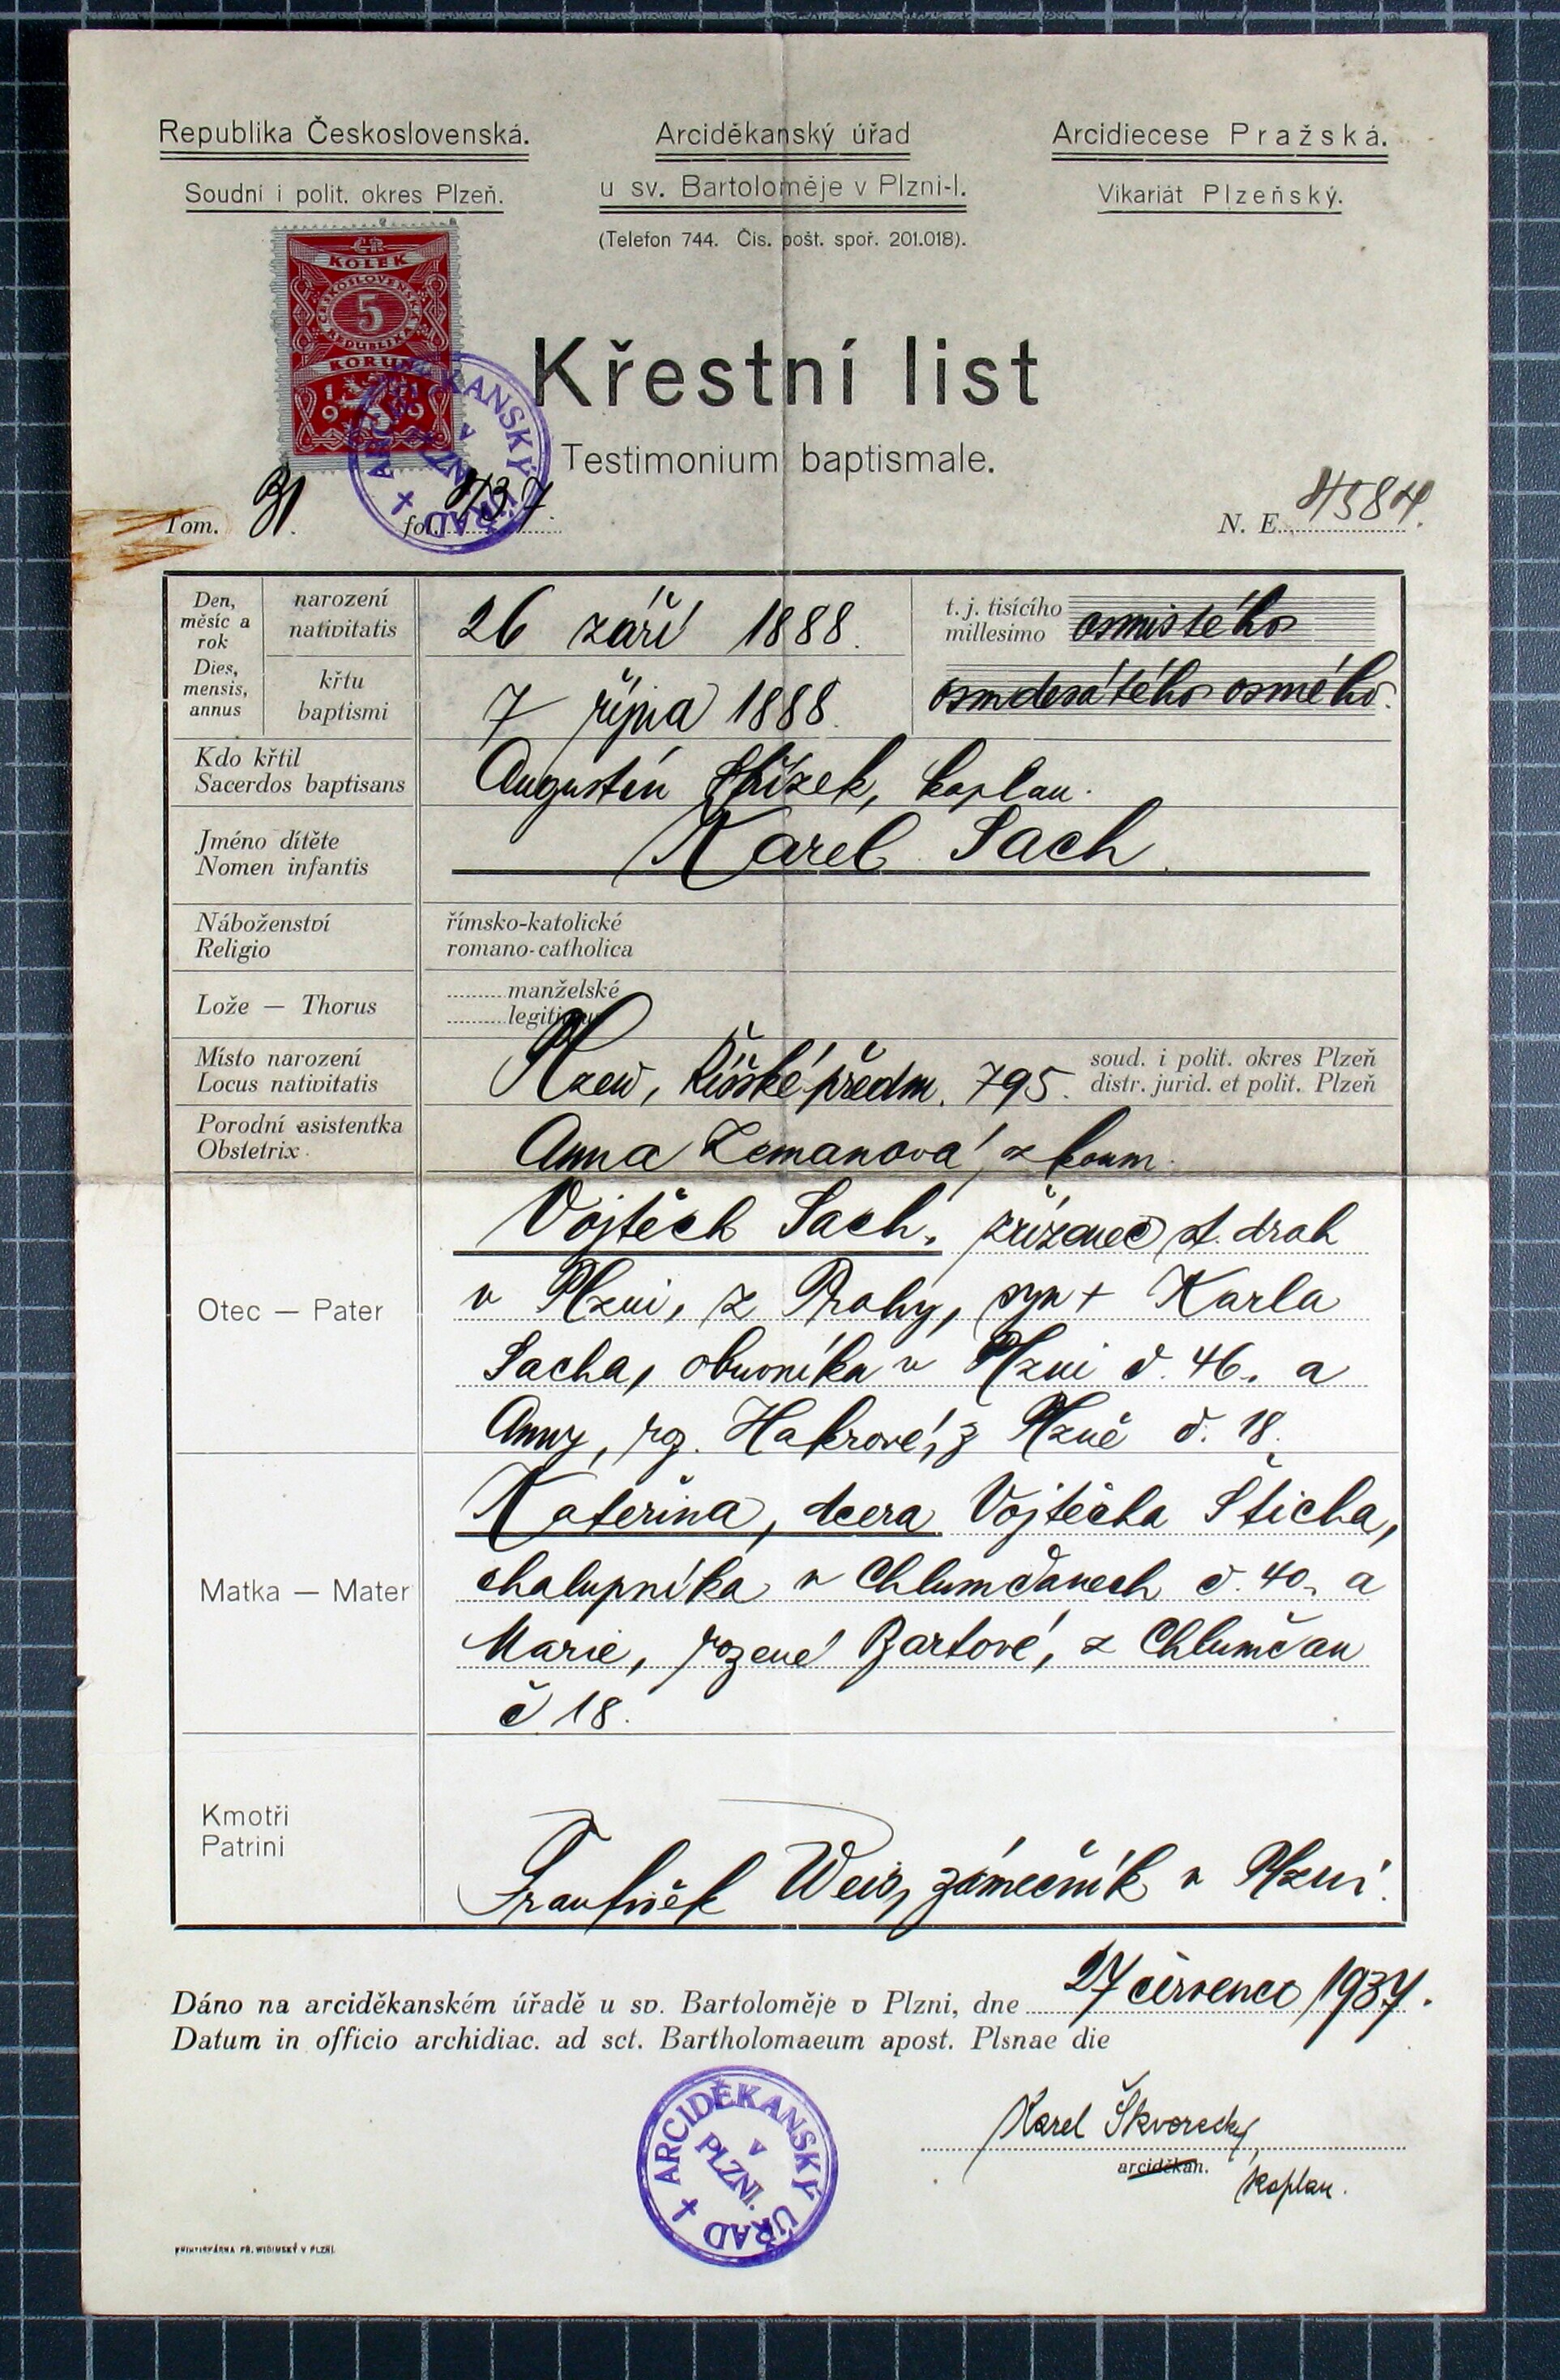 Republika Československá.
Soudní i polit. okres Plzeň.
Arciděkanský úřad
u sv. Bartoloměje v Plzni-I.
(Telefon 744. Čís. pošt. spoř. 201.018).
Arcidiecese Pražská.
Vikariát Plzeňský.
ČR
KOLEK
ČESKOSLOVENSKÁ
5
REPUBLIKA
KORUN
Křestní list
Testimonium baptismale.
Tom. 31. fol.
N. E. 4584.
Den, měsíc a rok
Dies, mensis, annus
narození
nativitatis
26 září 1888.
t. j. tisícího
millesimo
osmistého
osmdesátého osmého.
křtu
baptismi
7 října 1888.
Kdo křtil
Sacerdos baptisans
Augustin kaplan.
Jméno dítěte
Nomen infantis
Karel Sach.
Náboženství
Religio
římsko-katolické
romano-catholica
Lože — Thorus
manželské
Místo narození
Locus nativitatis
Plzeň, Říšské předm. 795.
soud. i polit. okres Plzeň
distr. jurid. et polit. Plzeň
Porodní asistentka
Obstetrix.
Anna Zemanová, zkoum.
Otec — Pater
Vojtěch Sach, zřízenec st. drah
v Plzni, z Prahy, syn + Karla
Sacha, obuvníka v Plzni č. 46, a
Anny, roz. z Plzně č. 18.
Matka — Mater
Kateřina, dcera Vojtěcha Šticha,
chalupníka v Chlumčanech č. 40, a
Marie, rozené Bartové, z Chlumčan
č 18.
Kmotři
Patrini
František Weis, zámečník v Plzni.
Dáno na arciděkanském úřadě u sv. Bartoloměje v Plzni, dne 27 července 1937.
Datum in officio archidiac. ad sct. Bartholomaeum apost. Plsnae die
ARCIDĚKANSKÝ ÚŘAD
v
PLZNI.
Karel Škvorecky,
arciděkan.
kaplan.
KNIHTISKÁRNA FR. WIDIMSKÝ V PLZNI.